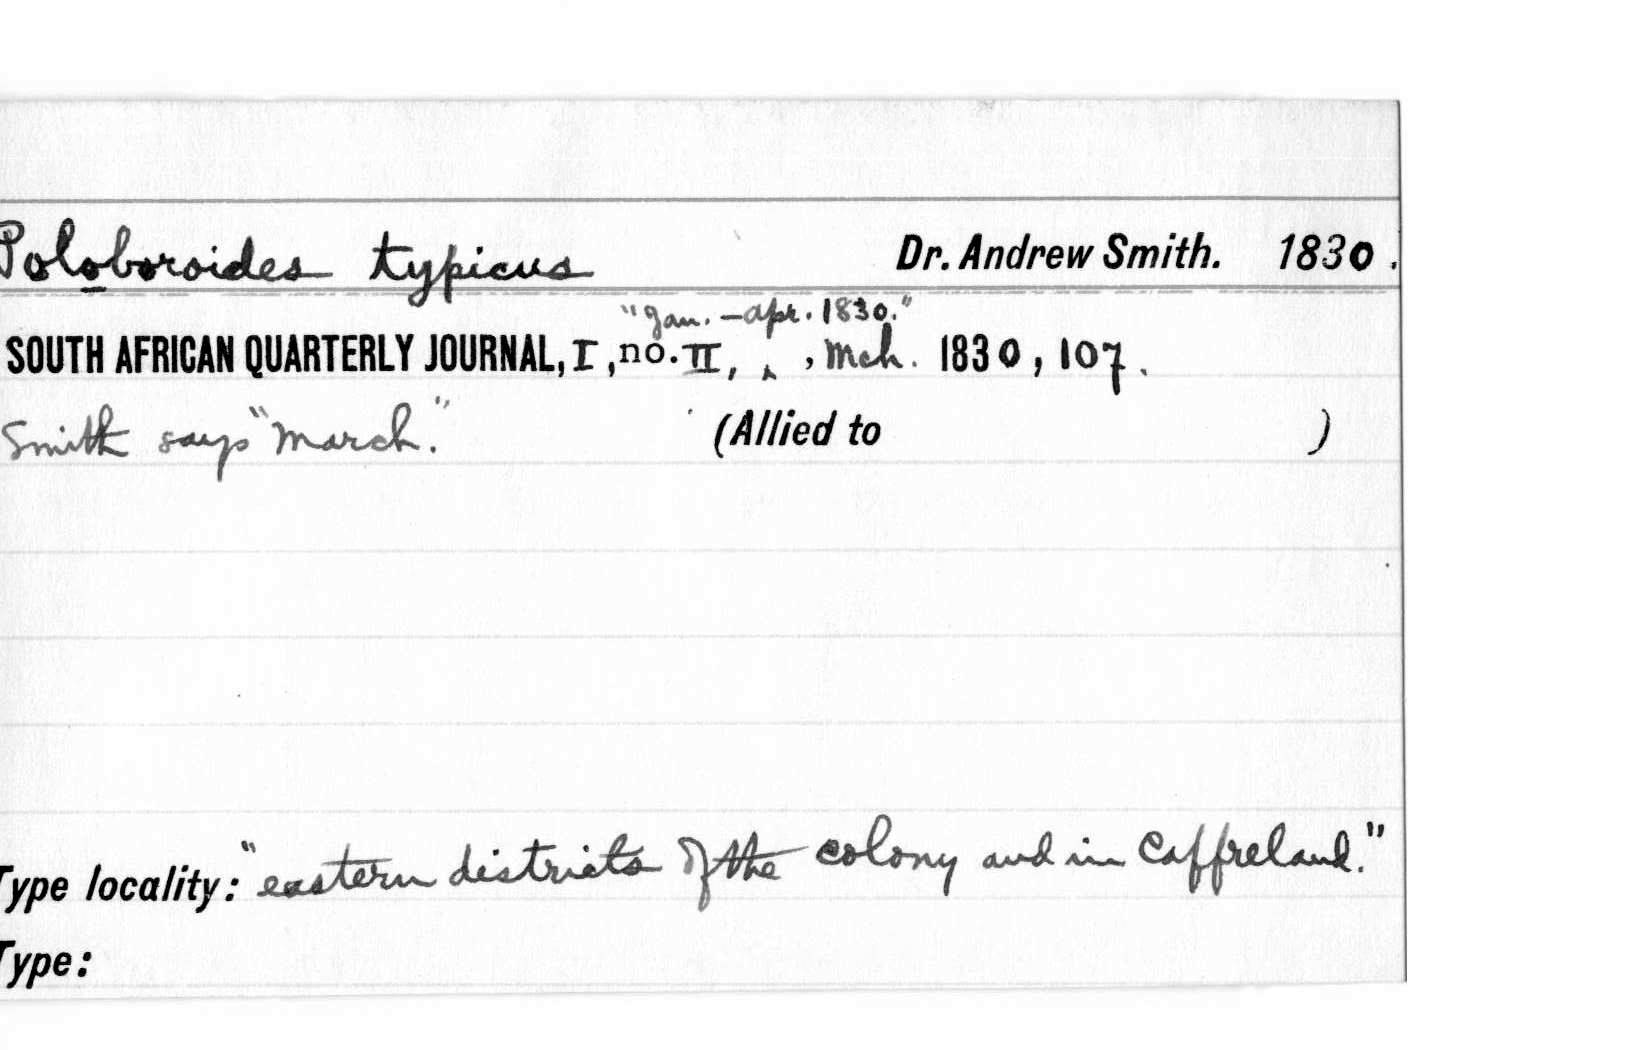 Poloboroides typicus Dr. Andrew Smith. 1830.
"Jan. - Apr. 1830."
SOUTH AFRICAN QUARTERLY JOURNAL, I, no. II, ‸, Mch. 1830, 107.
Smith says "March." (Allied to )
Type locality: "eastern districts of the colony and in Caffreland."
Type: